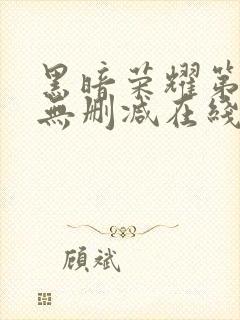 黑暗荣耀第
無删减在綫
顾斌